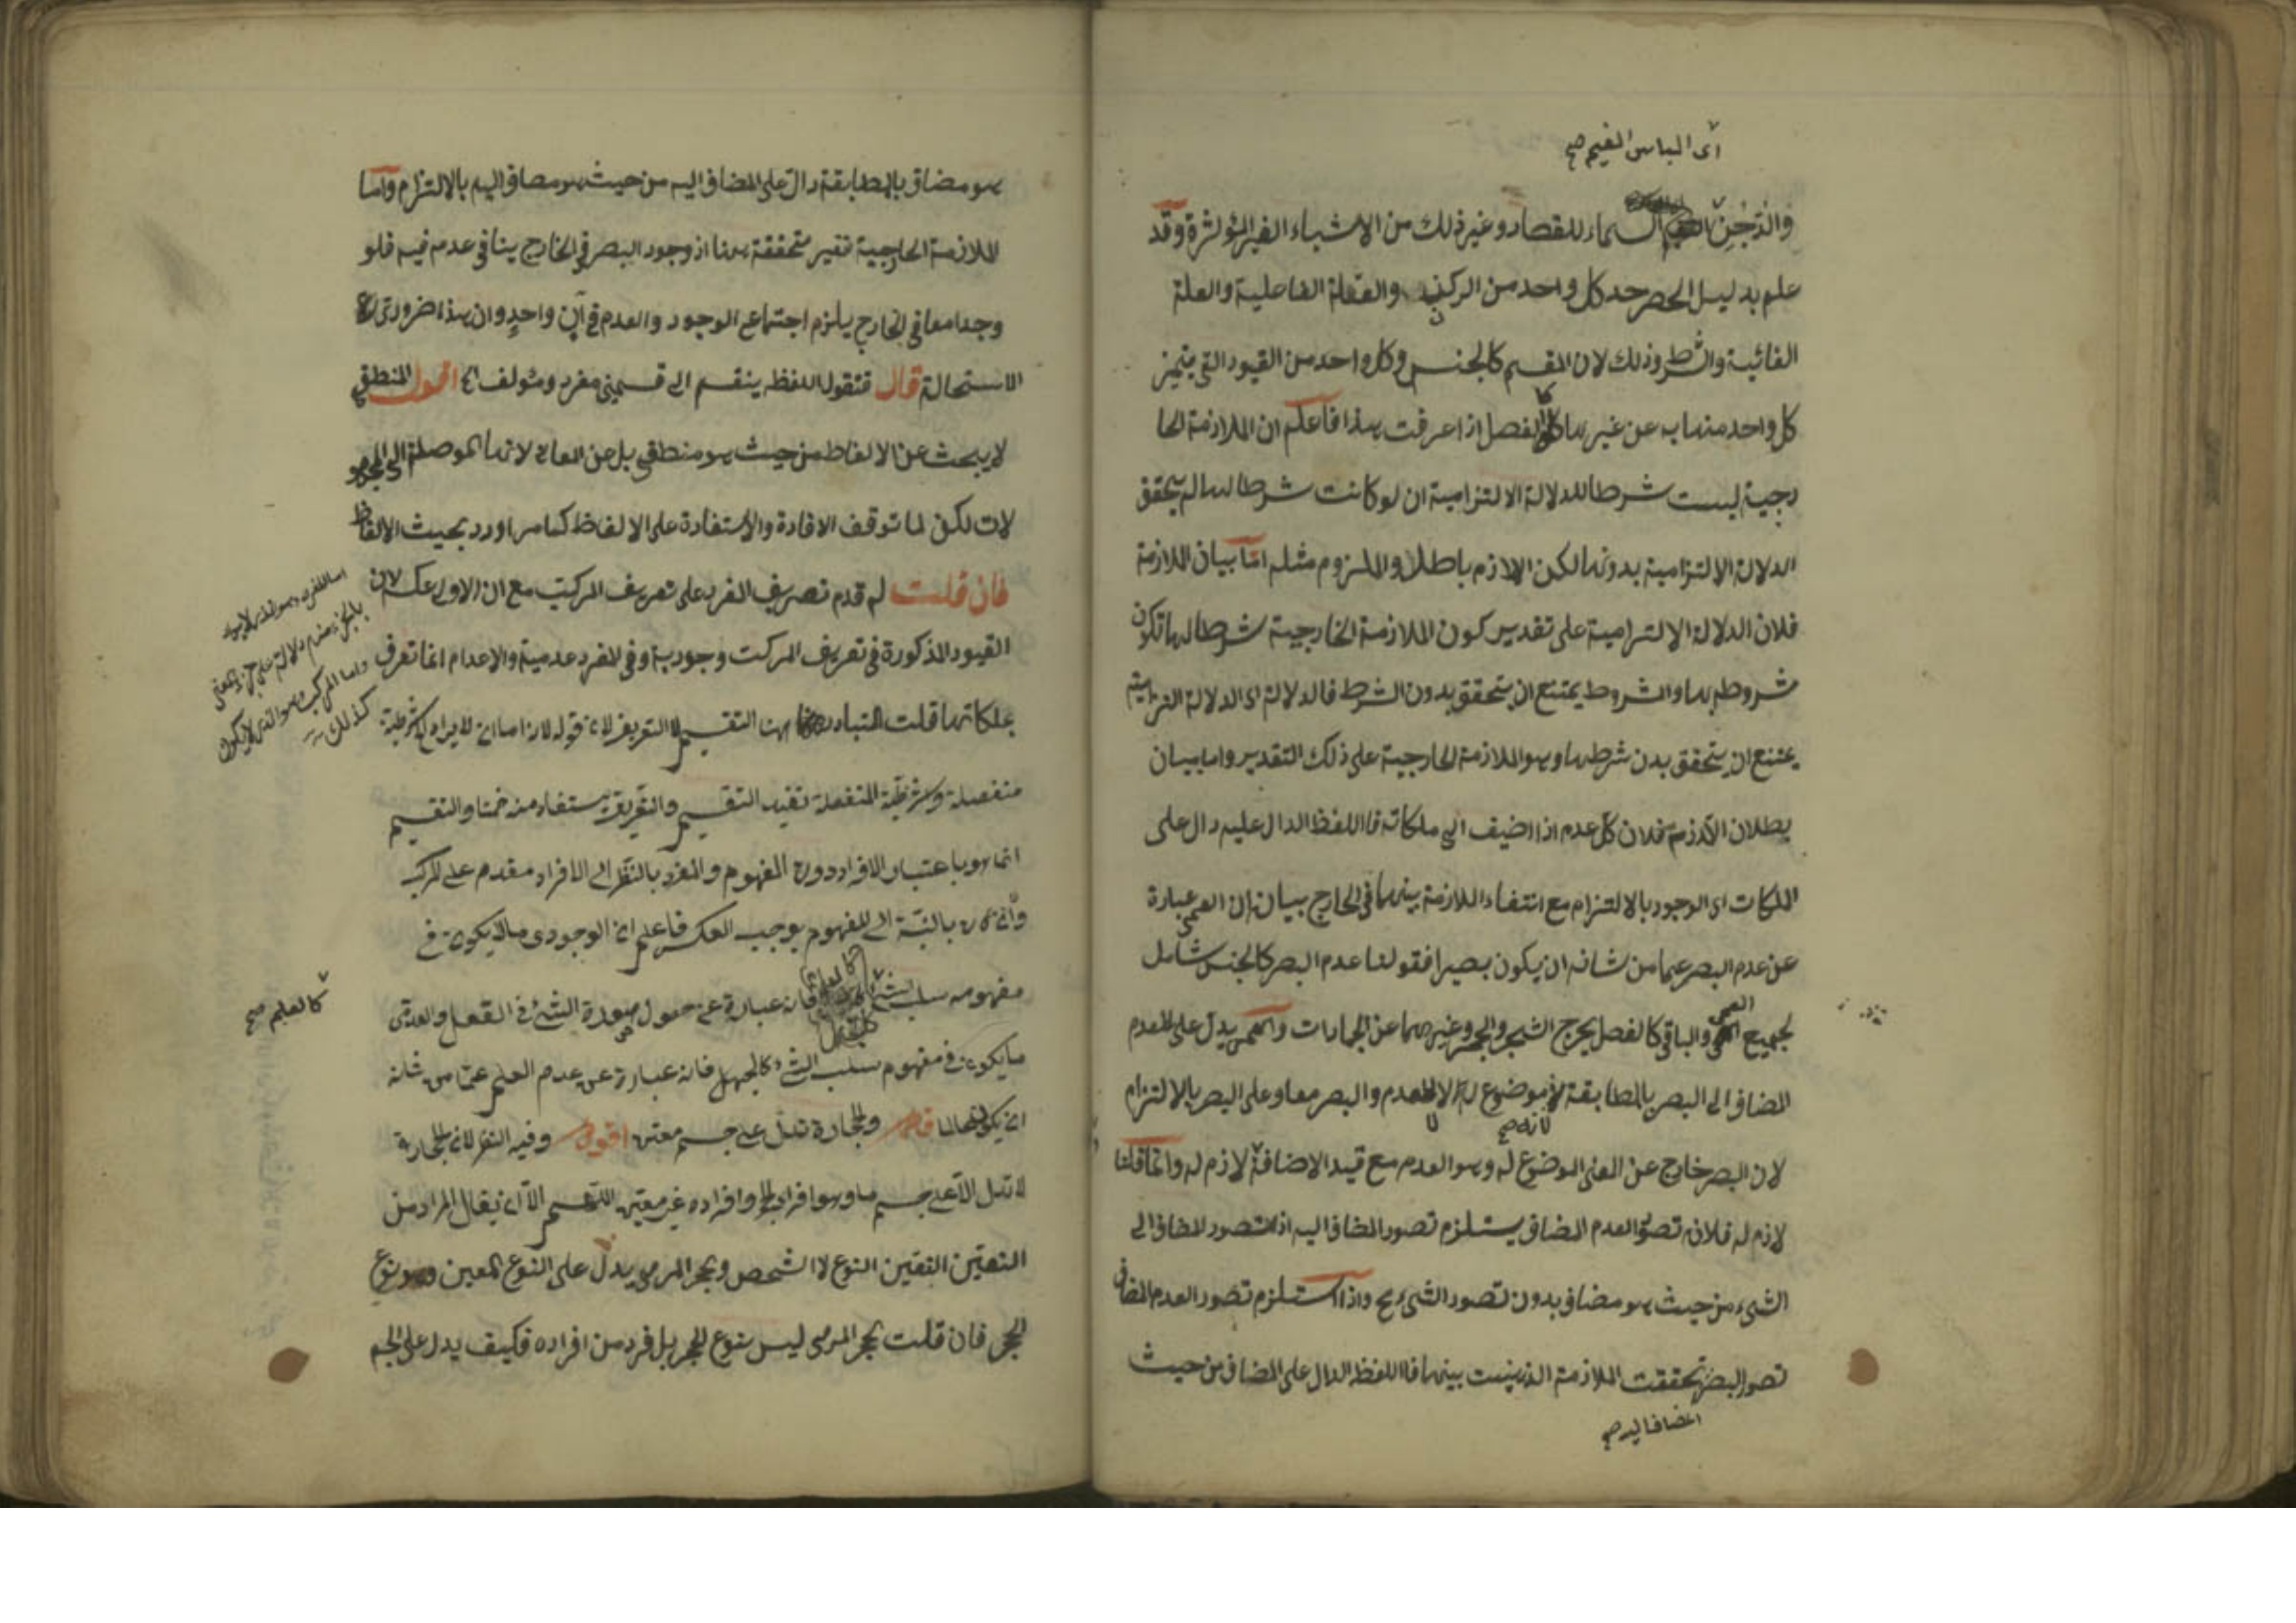 أى الباس الغيم صح
والدّجن السماء للقصار وغير ذلك من الاشياء الغير المؤثرة وقد
علم بدليل الحصر حد كل واحد من الركن والعلة الفاعلية والعلة
الغائية والشرط وذلك لان المقسم كالجنس وكل واحد من القيود التى يتميز
كل واحد منها به عن غيرها كالفصل اذا عرفت هذا فاعلم ان الملازمة الخا
رجية ليست شرطا للدلالة الالتزامية ان لو كانت شرطا لها لم يتحقق
الدلالة الالتزامية بدونها لكن اللازم باطل والملزوم مثله امّا بيان الملازمة
فلان الدلالة الالتزامية على تقدير كون الملازمة الخارجية شرطا لها تكون
مشروطة بها والمشروط يمتنع ان يتحقق بدون الشرط فالدلالة اى الدلالة التزامية
يمتنع ان يتحقق بدن شرطها وهو الملازمة الخارجية على ذلك التقدير واما بيان
بطلان اللازم فلان كل عدم اذا اضيف الى ملكاته فاللفظ الدال عليه دال على
الملكات اى الوجود بالالتزام مع انتفاء اللازمة بينهما فى الخارج بيانه ان العمى عبارة
عن عدم البصر عما من شانه ان يكون بصيرا فقولنا عدم البصر كالجنس شامل
لجميع العمى والباقى كالفصل يخرج الشجر والحجر وغيرهما عن الجمادات والعمى يدل على العدم
المضاف الى البصر بالمطابقة لانه موضوع له لا للعدم والبصر معا وعلى البصر بالالتزام
لانه صح
لان البصر خارج عن المعنى الموضوع له وهو العدم مع قيد الاضافة لازم له وانما قلنا
لازم له فلان تصوّر العدم المضاف يستلزم تصور المضاف اليه اذ التصور المضاف الى
الشىء من حيث هو مضاف بدون تصور الشىء مح واذا استلزم تصور العدم المضاف
تصور البصر تحققت الملازمة الذهنيت بينهما فاللفظ الدال على المضاف من حيث
المضاف اليه صح
هو مضاف بالمطابقة دالّ على المضاف اليه من حيث هو مضاف اليه بالالتزام وامّا
الملازمة الخارجية فغير متحققة هنا اذ وجود البصر فى الخارج ينافى عدمه فيه فلو
وجدا معا فى الخارج يلزم اجتماع الوجود والعدم فى آن واحد وان هذا ضرورى
الاستحالة قال فنقول اللفظ ينقسم الى قسمين مفرد ومؤلف اه اقول المنطقى
لا يبحث عن الالفاظ من حيث هو منطقى بل عن المعانى لانها الموصلة الى المجهو
لات لكن لما توقف الافادة والاستفادة على الالفاظ كما مر اورد بحيث الالفاظ
فان قلت لم قدم تعريف المفرد على تعريف المركب مع ان الاولى عكسه لان
القيود المذكورة فى تعريف المركب وجودية وفى المفرد عدمية والاعدام انما تعرف
بملكاتها قلت المتبادر هنا التقسيم لا التعريف لان قوله لانه اما ان لا يراد شرطية
منفصلة والشرطيّة المنفصلة تفيد التقسيم والتعريف يستفاد منه ضمنا والتقسيم
انما هو باعتبار الافراد دون المفهوم والمفرد بالنظر الى الافراد مقدم على المركب
وان كان بالنسبة الى المفهوم يوجب العكس فاعلم ان الوجودى ما لا يكون فى
مفهومه سلب الشئ كالعلم فانه عبارة عن حصول صورة الشئ فى العقل والعدمى
كالعلم صح
ما يكون فى مفهوم سلب الشئ كالجهل فانه عبارة عن عدم العلم عمّا من شانه
ان يكون عالما قال والحجارة تدل على جسم معين اقول وفيه النظر لان الحجارة
لا تدل الّا على جسم ما وهو افراد وافراده غير معين اللهم الّا ان يقال المراد من
التعيّن التعين النوع لا الشخص والحجر المرمى يدل على النوع المعين وهو نوع
الحجر فان قلت الحجر المرمى ليس بنوع الحجر بل فرد من افراده فكيف يدل على الجسم
اما المفرد وهو الذى لا يراد
بالجزء منه دلالة على جزء المعنى
واما المركب وهو الذى لا يكون
كذلك